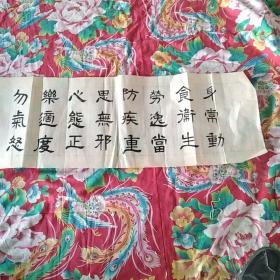 身常動
食衞生
勞逸當
防疾重
思無邪
心態正
樂適度
勿氣怒